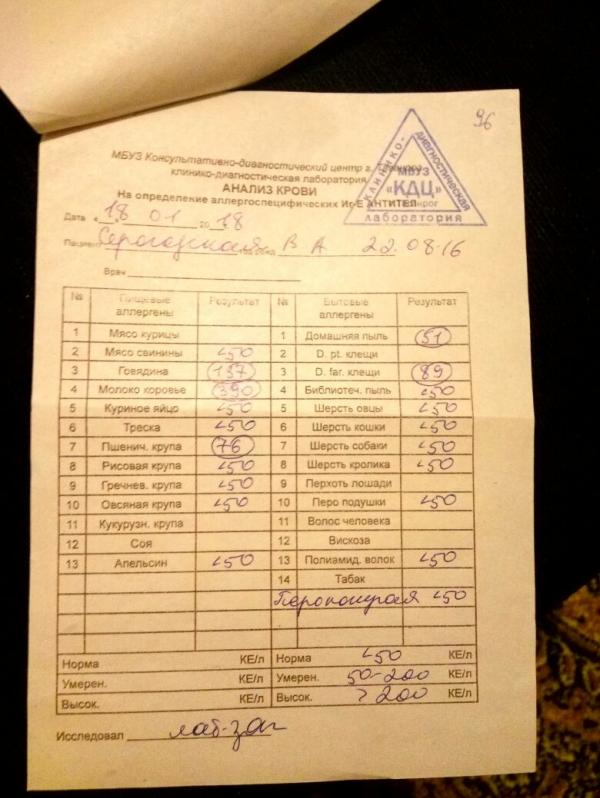 96
МБУЗ Консультативно-диагностический центр г.
клинико-диагностическая лаборатория
АНАЛИЗ КРОВИ
На определение аллергоспецифических Иг-Е АНТИТЕЛ
КЛИНИКО-ДИАГНОСТИЧЕСКАЯ
МБУЗ
«КДЦ»
ЛАБОРАТОРИЯ
Дата « 18 01 2018
Пациент В А 22.08.16
Врач
№ Пищевые аллергены Результат № Бытовые аллергены Результат
1 Мясо курицы 1 Домашняя пыль 51
2 Мясо свинины <50 2 D. pt. клещи
3 Говядина 157 3 D. far. клещи 89
4 Молоко коровье 390 4 Библиотеч. пыль <50
5 Куриное яйцо <50 5 Шерсть овцы <50
6 Треска <50 6 Шерсть кошки <50
7 Пшенич. крупа 76 7 Шерсть собаки <50
8 Рисовая крупа <50 8 Шерсть кролика <50
9 Гречнев. крупа <50 9 Перхоть лошади
10 Овсяная крупа <50 10 Перо подушки <50
11 Кукурузн. крупа 11 Волос человека
12 Соя 12 Вискоза
13 Апельсин <50 13 Полиамид. волок <50
14 Табак
<50
Норма КЕ/л Норма <50 КЕ/л
Умерен. КЕ/л Умерен. 50-200 КЕ/л
Высок. КЕ/л Высок. >200 КЕ/л
Исследовал